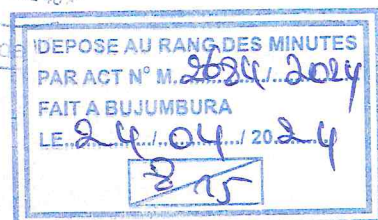 DEPOSE AU RANG DES MINUTES
PAR ACT N° M. 2684 / 2024
FAIT A BUJUMBURA
LE 24 / 04 / 2024
2/15